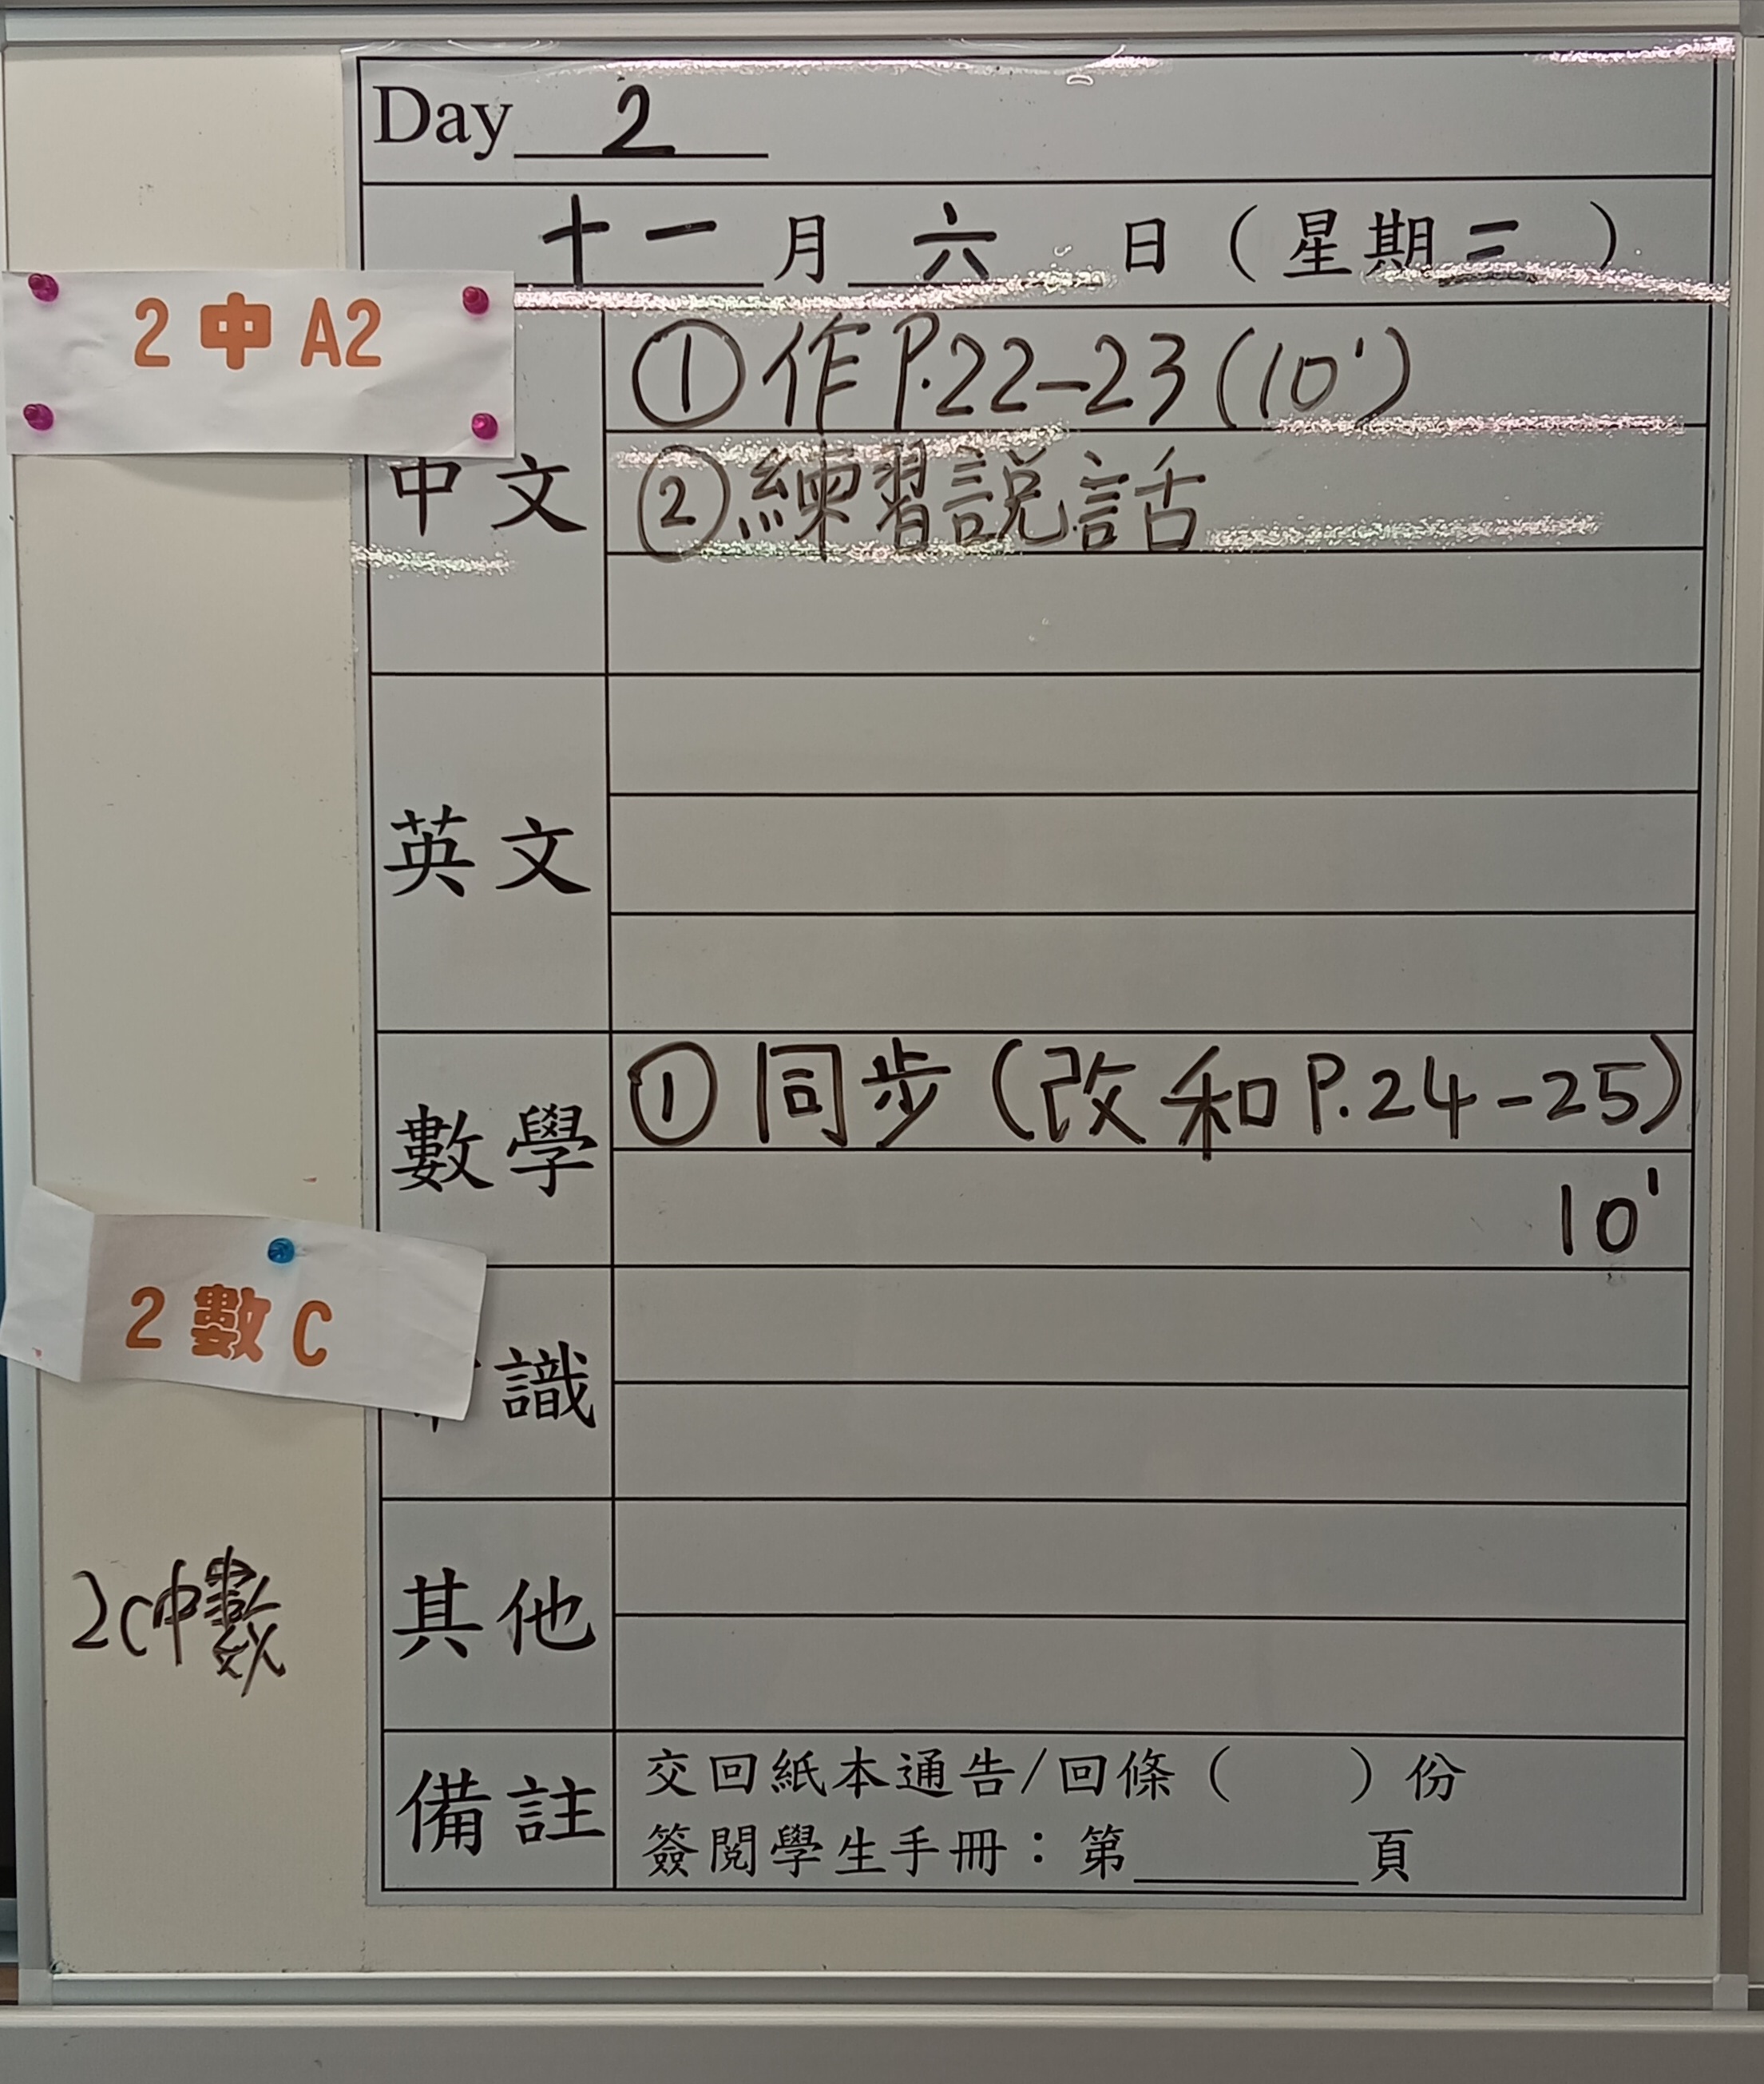 Day 2
十一月六日（星期三）
2 中 A2
中文
①作P.22-23(10')
②練習說話
英文
數學
①同步(改和P.24-25)
10'
2 數 C
識
其他
2C中數
備註
交回紙本通告/回條（　　）份
簽閱學生手冊：第____頁